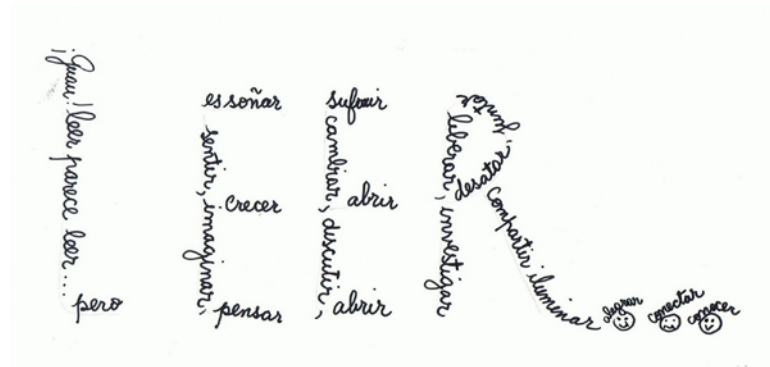 ¡Guau! leer parece leer...
pero
es soñar
sentir, imaginar,
crecer
pensar
sufrir
cambiar, discutir,
abrir
abrir
liberar, investigar
desatar
compartir iluminar
alegrar
conectar
conocer